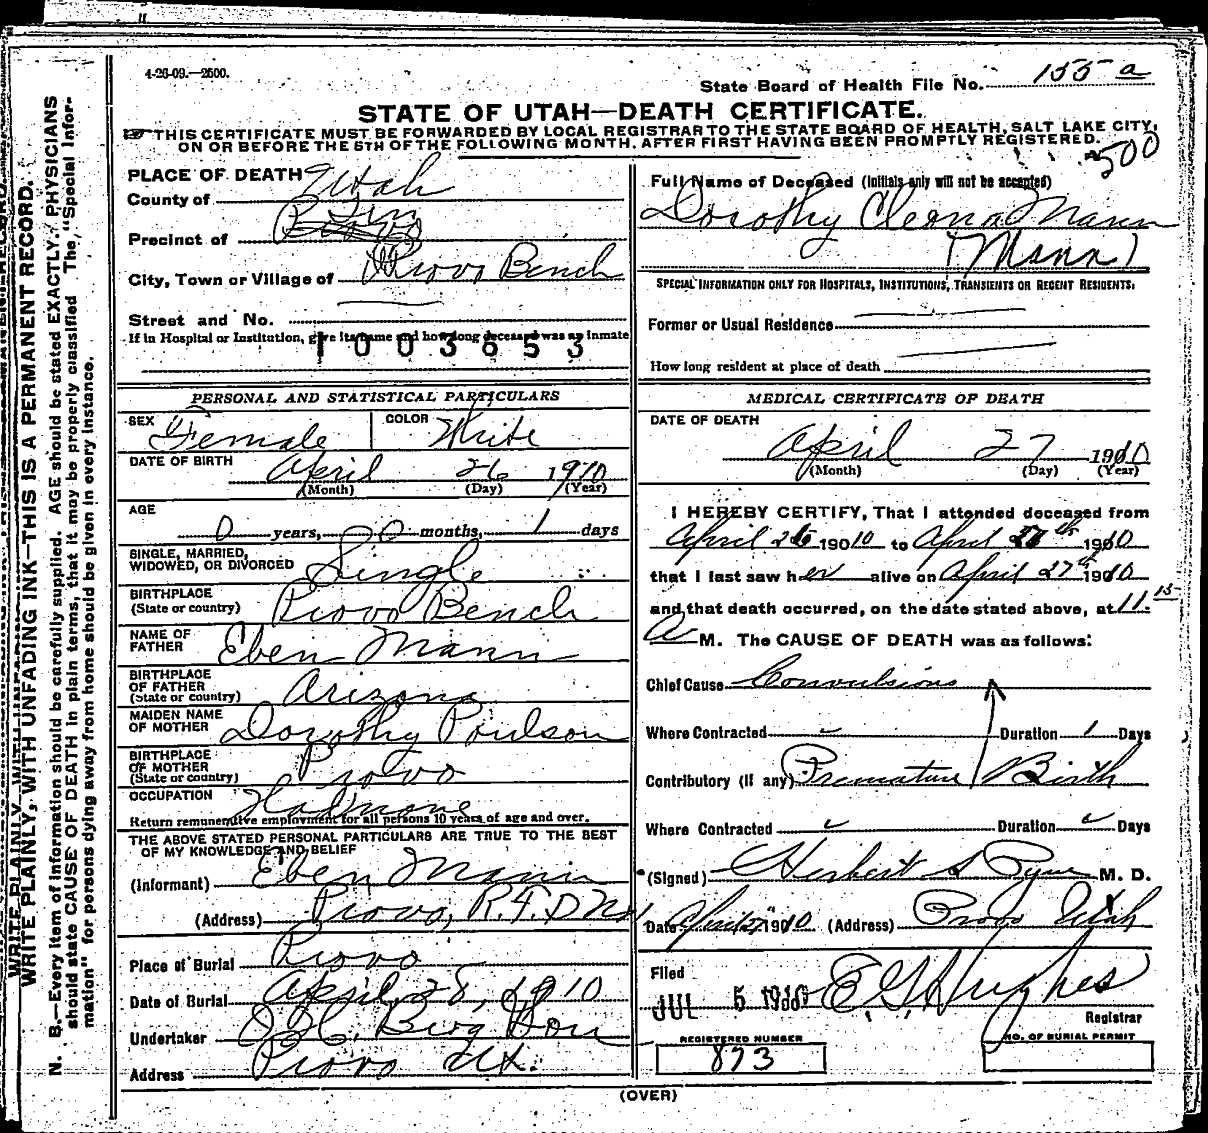 4-26-09.—2500.
State Board of Health File No. 155 a
STATE OF UTAH—DEATH CERTIFICATE.
THIS CERTIFICATE MUST BE FORWARDED BY LOCAL REGISTRAR TO THE STATE BOARD OF HEALTH, SALT LAKE CITY,
ON OR BEFORE THE 5TH OF THE FOLLOWING MONTH, AFTER FIRST HAVING BEEN PROMPTLY REGISTERED.
500
PLACE OF DEATH
County of Utah
Precinct of
City, Town or Village of Provo Bench
Street and No.
If in Hospital or Institution, give its name and how long deceased was an inmate
1003653
Full Name of Deceased (Initials only will not be accepted)
Dorothy Cleona Mann
(Mann)
SPECIAL INFORMATION ONLY FOR HOSPITALS, INSTITUTIONS, TRANSIENTS OR RECENT RESIDENTS.
Former or Usual Residence
How long resident at place of death
PERSONAL AND STATISTICAL PARTICULARS
SEX Female COLOR White
DATE OF BIRTH April 26 1910
(Month) (Day) (Year)
AGE
0 years, 0 months, 1 days
SINGLE, MARRIED,
WIDOWED, OR DIVORCED Single
BIRTHPLACE
(State or country) Provo Bench
NAME OF
FATHER Eben Mann
BIRTHPLACE
OF FATHER
(State or country) Arizona
MAIDEN NAME
OF MOTHER Dorothy Poulson
BIRTHPLACE
OF MOTHER
(State or country) Provo
OCCUPATION Had none
Return remunerative employment for all persons 10 years of age and over.
THE ABOVE STATED PERSONAL PARTICULARS ARE TRUE TO THE BEST
OF MY KNOWLEDGE AND BELIEF
(Informant) Eben Mann
(Address) Provo, R.F.D.
Place of Burial Provo
Date of Burial April 28, 1910
Undertaker
Address Provo Ut.
MEDICAL CERTIFICATE OF DEATH
DATE OF DEATH
April 27 1910
(Month) (Day) (Year)
I HEREBY CERTIFY, That I attended deceased from
April 26 1910 to April 27th 1910
that I last saw her alive on April 27th 1910
and that death occurred, on the date stated above, at 11:15
A M. The CAUSE OF DEATH was as follows:
Chief Cause Convulsions
Where Contracted Duration 1 Days
Contributory (if any) Premature Birth
Where Contracted Duration Days
(Signed) Herbert S Pyne M. D.
Date April 27 1910 (Address) Provo Utah
Filed
JUL 5 1910 E. G. Hughes
Registrar
REGISTERED NUMBER
873
NO. OF BURIAL PERMIT
(OVER)
WRITE PLAINLY, WITH UNFADING INK—THIS IS A PERMANENT RECORD.
N. B.—Every item of information should be carefully supplied. AGE should be stated EXACTLY. PHYSICIANS
should state CAUSE OF DEATH in plain terms, that it may be properly classified. The "Special Infor-
mation" for persons dying away from home should be given in every instance.